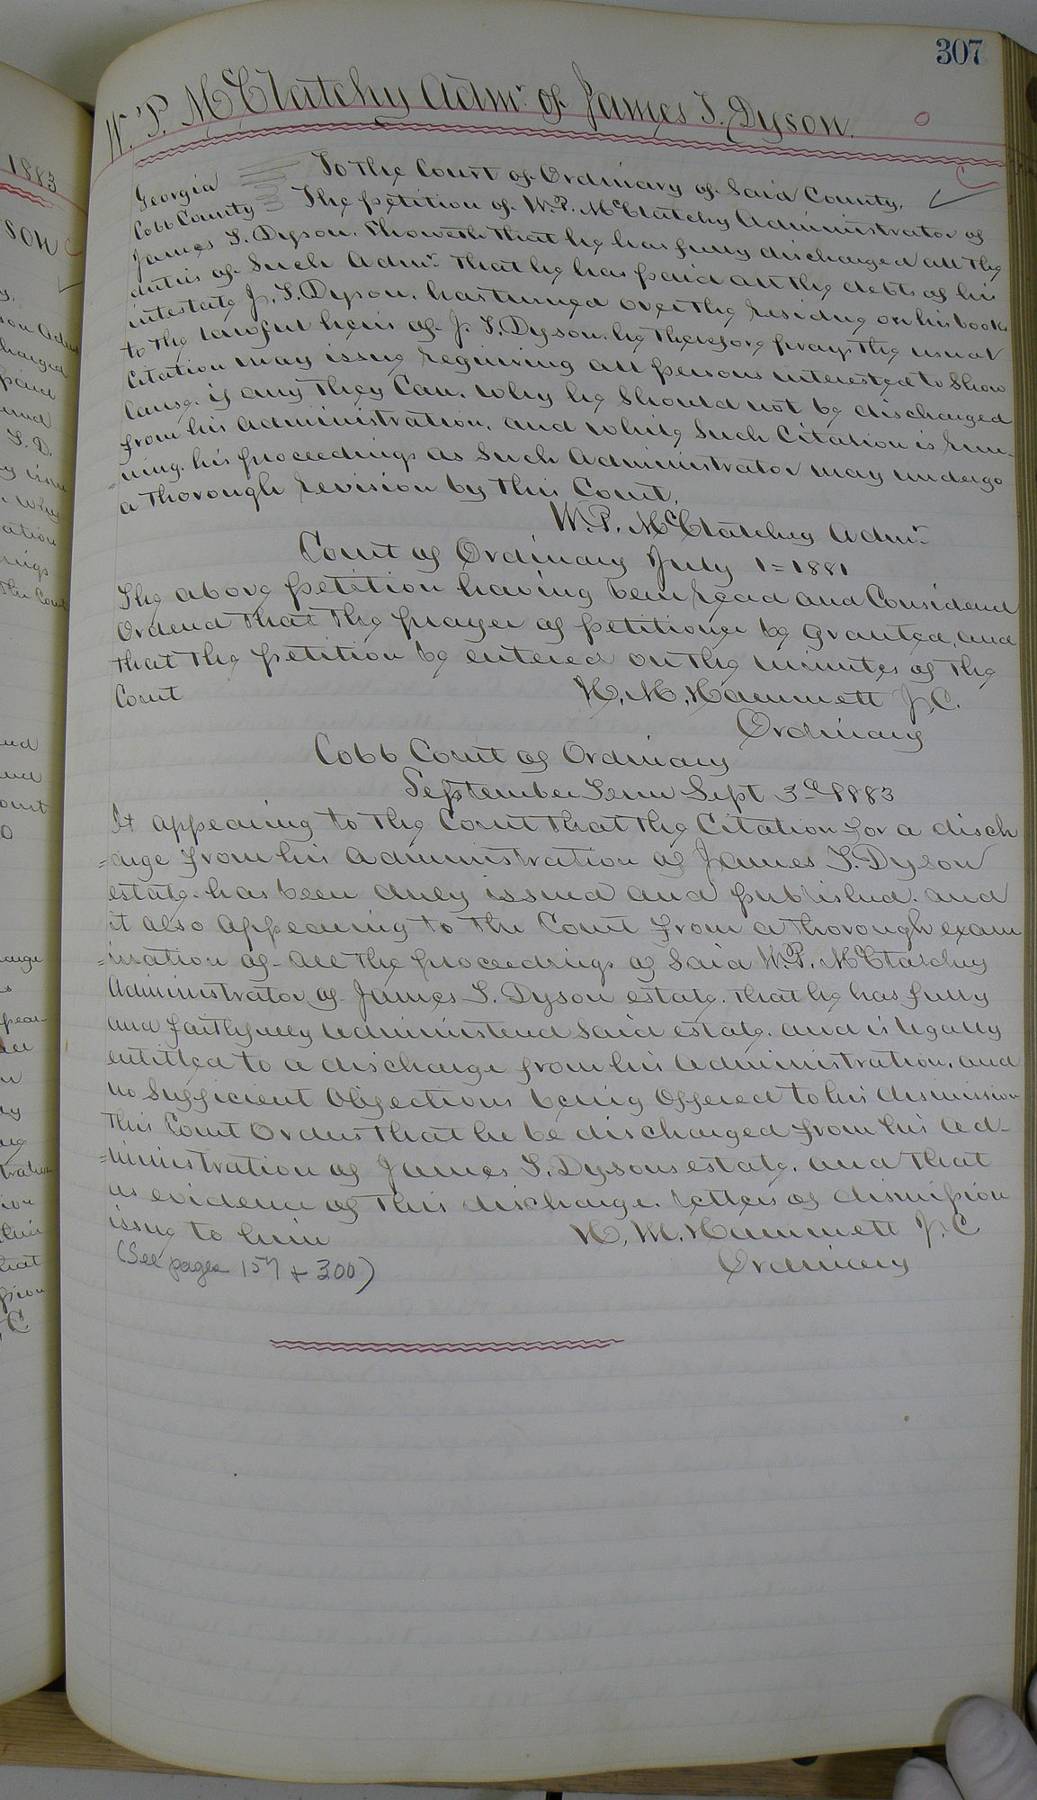 307
W. P. McClatchy Adm.r of James S. Dyson.
Georgia To the Court of Ordinary of Said County.
Cobb County The petition of W.P. McClatchy Administrator of
James S. Dyson. Showeth that he has fully discharged all the
duties of Such Adm.r that he has paid all the debts of his
intestate J. S. Dyson. has turned over the residue on his books
to the lawful heirs of J. S. Dyson. he therefore prays the usual
Citation may issue requiring all persons interested to Show
Cause. if any they Can. Why he Should not be discharged
from his administration. and while Such Citation is run-
-ning. his proceedings as Such Administrator may undergo
a thorough revision by this Court.
W.P. McClatchy Adm.r
Court of Ordinary July 1= 1881
The above petition having been read and Considered
Ordered that the prayer of petitioner be granted, and
that the petition be entered on the minutes of the
Court H. M. Hammett J.C.
Ordinary
Cobb Court of Ordinary
September Term Sept 3d 1883
It appearing to the Court that the Citation for a disch
=arge from his administration of James S. Dyson
estate. has been duly issued and published. and
it also appearing to the Court from a thorough exam
=ination of all the proceedings of Said W.P. McClatchy
Administrator of James S. Dyson estate. that he has fully
and faithfully administered Said estate. and is legally
entitled to a discharge from his administration. and
no Sufficient Objections being Offered to his dismission
This Court Orders that he be discharged from his ad-
=ministration of James S. Dysons estate. and that
as evidence of this discharge. letters of dismission
issue to him H. M. Hammett J.C
(See pages 157 + 300) Ordinary